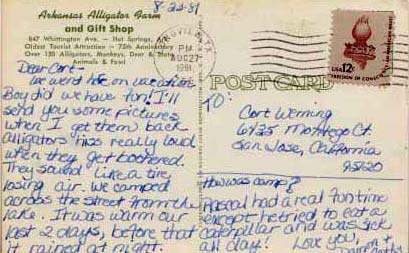 8-22-81
Arkansas Alligator Farm
and Gift Shop
847 Whittington Ave. — Hot Springs,
Oldest Tourist Attraction — 75th Anniversary
Over 150 Alligators, Monkeys, Deer & Other
Animals & Fowl
PM
AUG 27
1981
USA 12c
FREEDOM OF CONSCIENCE
POST CARD
Dear Cort-
we went here on vacation.
Boy did we have fun! I'll
send you some pictures
when I get them back
alligators hiss really loud
when they get boothered.
They sound like a tire
losing air. We camped
across the street from the
lake. It was warm our
last 2 days, before that
it rained at night.
How was camp?
Rascal had a real fun time
except he tried to eat a
caterpillar and was sick
all day!
Love you,
TO:
Cort Weming
6735 Montego Ct.
San Jose, California
95120